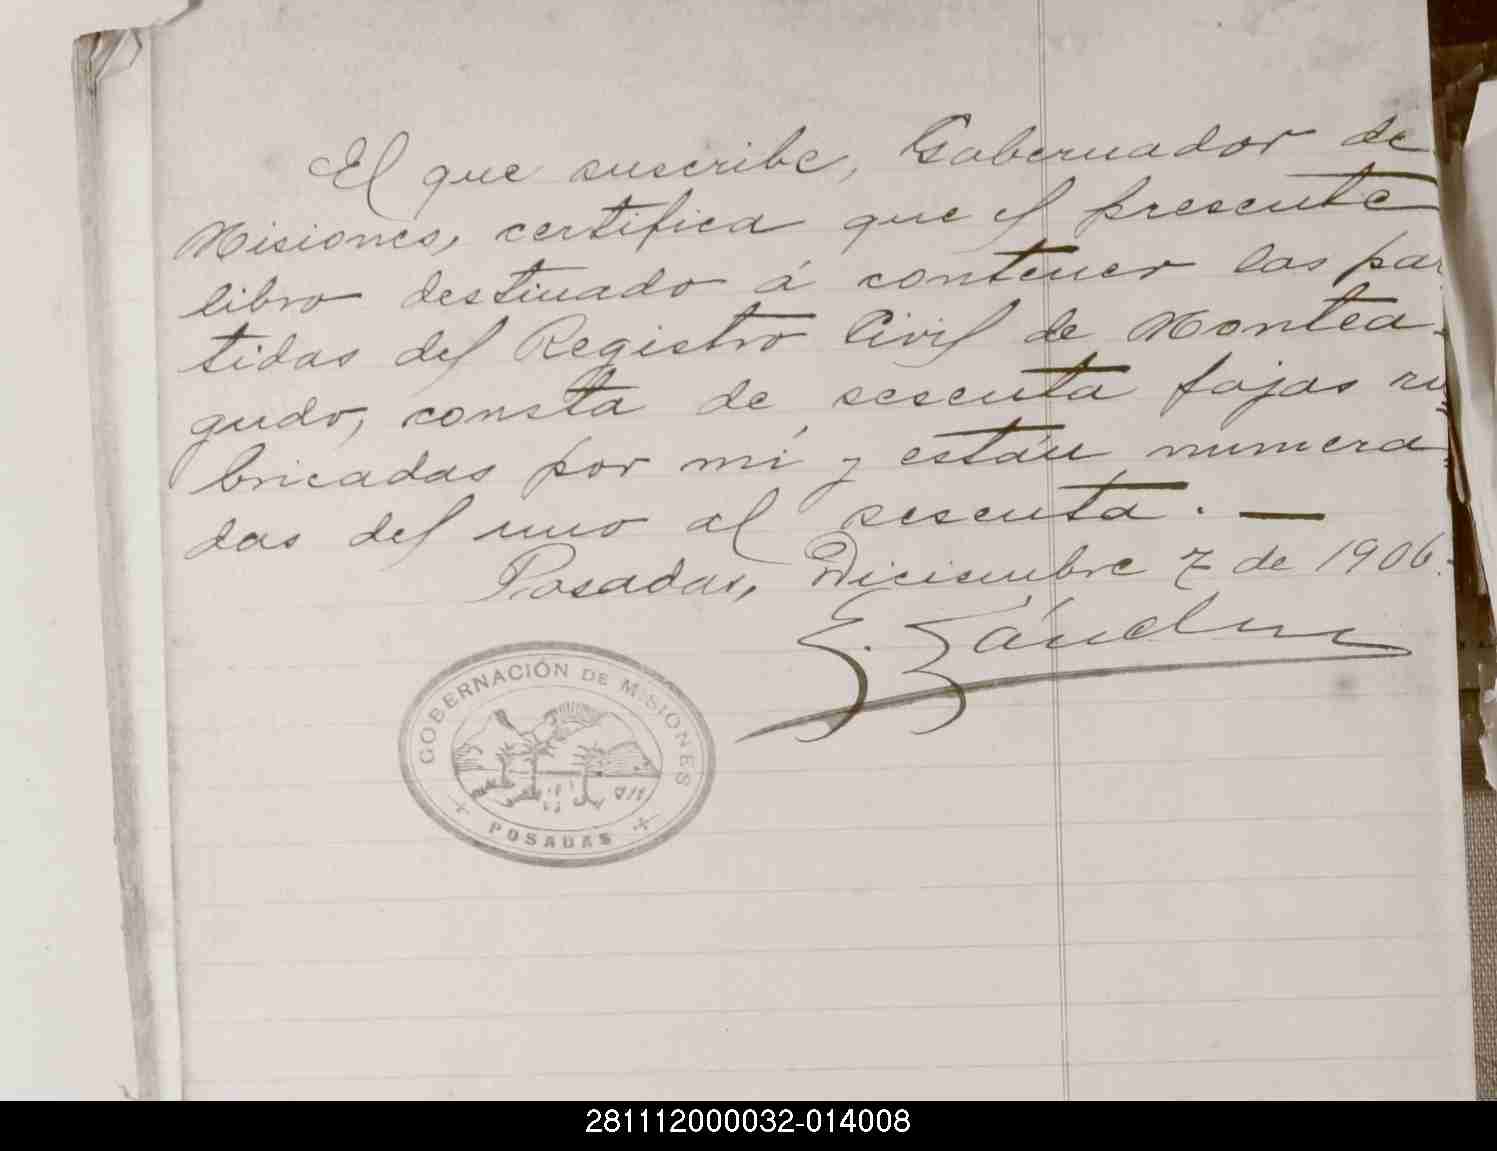 El que suscribe, Gobernador de
Misiones, certifica que el presente
libro destinado á contener las par
tidas del Registro Civil de Montea-
gudo, consta de sesenta fojas ru=
bricadas por mí y están numera=
das del uno al sesenta. —
Posadas, Diciembre 7 de 1906.
E. Sánchez
GOBERNACIÓN DE MISIONES
POSADAS
281112000032-014008